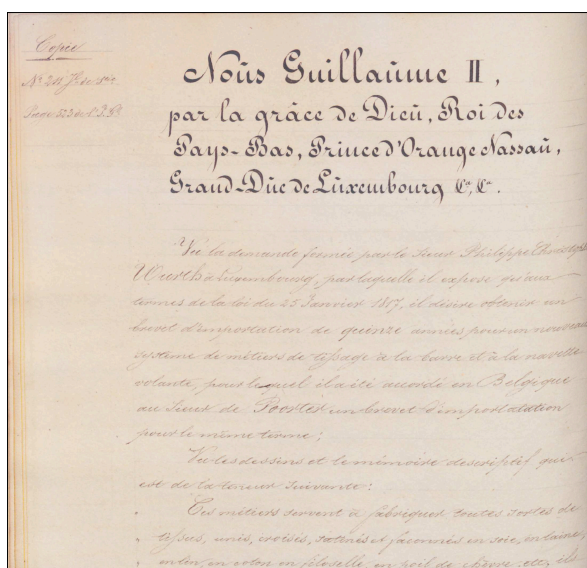 Copie
Nous Guillaume II,
par la grâce de Dieu, Roi des
Pays-Bas, Prince d'Orange Nassau,
Grand-Duc de Luxembourg &a, &a.
Vu la demande formée par le Sieur Philippe
Wurth à Luxembourg, par laquelle il expose qu'aux
termes de la loi du 25 Janvier 1817, il désire obtenir un
brevet d'importation de quinze années pour un nouveau
système de métiers de tissage à la barre et à la navette
volante, pour lequel il a été accordé en Belgique
au Sieur de Poorter un brevet d'importatation
pour le même terme;
Vu les dessins et le mémoire descriptif qui
est de la teneur suivante:
Ces métiers servent à fabriquer toutes sortes de
tissus, unis, croisés, satinés et façonnés en soie, en laine,
en lin, en coton en filoselle, en poil de chèvre etc, ils